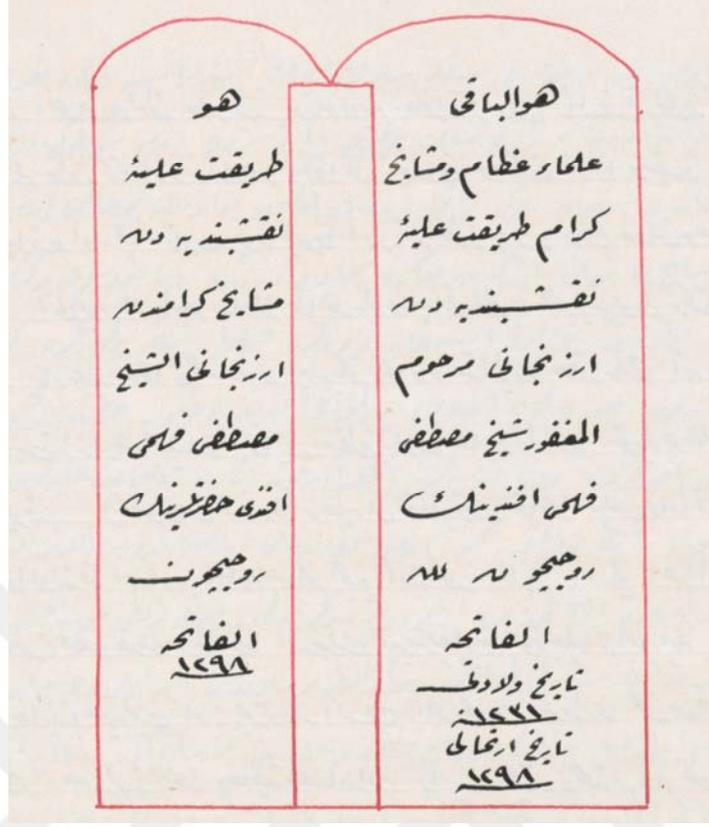 هوالباقی
علماء عظام ومشایخ
كرام طریقت علیۀ
نقشبندیه دن
ارزنجانی مرحوم
المغفور شیخ مصطفی
فهمی افندینك
روحیچون لله
الفاتحه
تاریخ ولادتی
١٢٣١
تاریخ ارتحالی
١٢٩٨
هو
طریقت علیۀ
نقشبندیه دن
مشایخ كرامندن
ارزنجانی الشیخ
مصطفی فهمی
افندی حضرتلرینك
روحیچون
الفاتحه
١٢٩٨